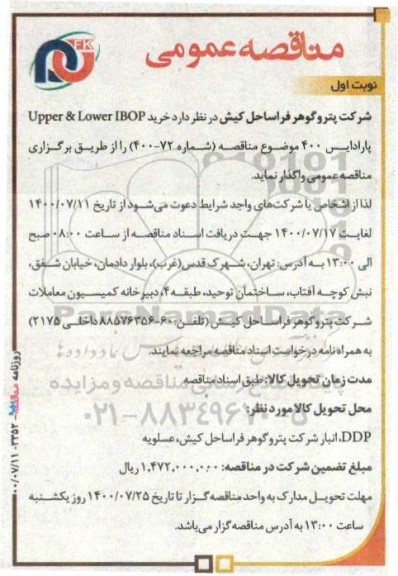 PK
مناقصه عمومی
نوبت اول
شرکت پتروگوهر فراساحل کیش در نظر دارد خرید Upper & Lower IBOP
پارادایس ۴۰۰ موضوع مناقصه (شماره ۷۲-۴۰۰) را از طریق برگزاری
مناقصه عمومی واگذار نماید.
لذا از اشخاص یا شرکت‌های واجد شرایط دعوت می‌شود از تاریخ ۱۴۰۰/۰۷/۱۱
لغایت ۱۴۰۰/۰۷/۱۷ جهت دریافت اسناد مناقصه از ساعت ۰۸:۰۰ صبح
الی ۱۳:۰۰ به آدرس: تهران، شهرک قدس(غرب)، بلوار دادمان، خیابان شفق،
نبش کوچه آفتاب، ساختمان توحید، طبقه ۴، دبیرخانه کمیسیون معاملات
شرکت پتروگوهر فراساحل کیش (تلفن: ۶۰-۸۸۵۷۶۳۵۶ داخلی ۲۱۷۵)
به همراه نامه درخواست اسناد مناقصه مراجعه نمایند.
مدت زمان تحویل کالا: طبق اسناد مناقصه
محل تحویل کالا مورد نظر:
DDP، انبار شرکت پتروگوهر فراساحل کیش، عسلویه
مبلغ تضمین شرکت در مناقصه: ۱,۴۷۲,۰۰۰,۰۰۰ ریال
مهلت تحویل مدارک به واحد مناقصه گزار تا تاریخ ۱۴۰۰/۰۷/۲۵ روز یکشنبه
ساعت ۱۳:۰۰ به آدرس مناقصه گزار می‌باشد.
ParsNamadData
۰۲۱-۸۸۳۴۹۶۷۰
روزنامه ۳۳۵۲ - ۰۰/۰۷/۱۱